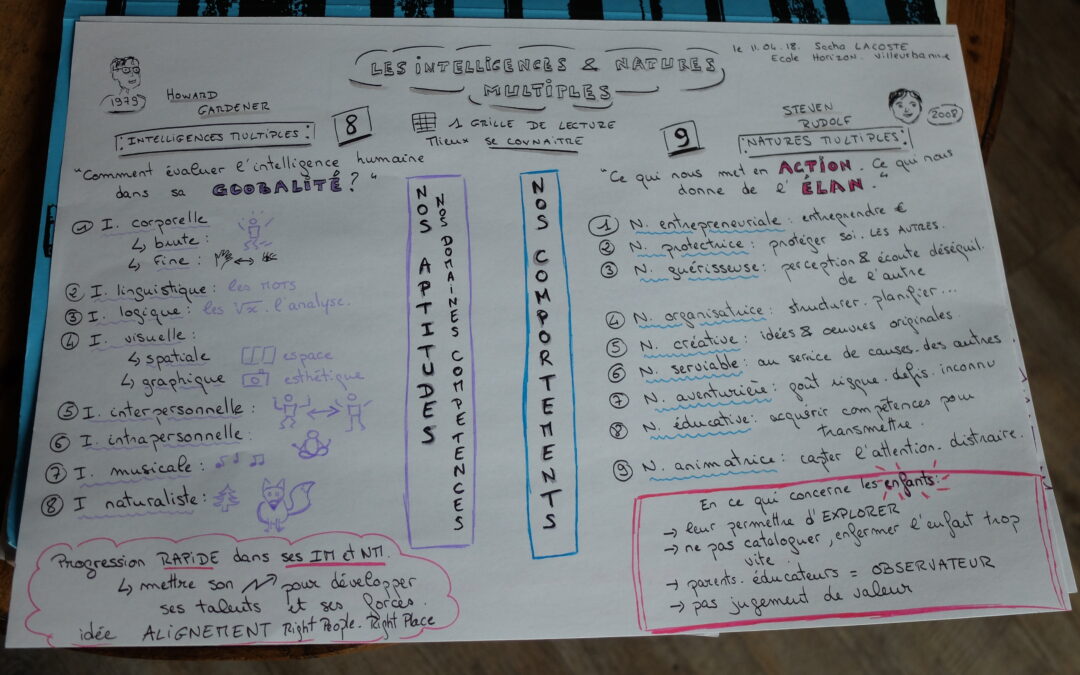 LES INTELLIGENCES & NATURES
MULTIPLES
le 11.04.18. Sacha LACOSTE
Ecole Horizon. Villeurbanne
1979
HOWARD
GARDENER
INTELLIGENCES MULTIPLES :
8
1 GRILLE DE LECTURE
Mieux SE CONNAITRE
9
STEVEN
RUDOLF
2008
NATURES MULTIPLES :
"Comment évaluer l'intelligence humaine
dans sa GLOBALITÉ ? "
① I. corporelle
↳ brute :
↳ fine :
② I. linguistique : les mots
③ I. logique : les √x. l'analyse.
④ I. visuelle
↳ spatiale espace
↳ graphique esthétique
⑤ I. interpersonnelle :
⑥ I. intrapersonnelle :
⑦ I. musicale :
⑧ I naturaliste :
Progression RAPIDE dans ses IM et NM.
↳ mettre son pour développer
ses talents et ses forces.
idée ALIGNEMENT Right People. Right Place
NOS APTITUDES
NOS DOMAINES COMPETENCES
NOS COMPORTEMENTS
"Ce qui nous met en ACTION. Ce qui nous
donne de l' ÉLAN. "
① N. entrepreneuriale : entreprendre €
② N. protectrice : protéger soi. LES AUTRES.
③ N. guérisseuse : perception & écoute déséquil.
de l'autre
④ N. organisatrice : structurer. planifier...
⑤ N. créative : idées & oeuvres originales
⑥ N. serviable : au service de causes. des autres.
⑦ N. aventurière : goût risque. défis. inconnu
⑧ N. éducative : acquérir compétences pour
transmettre.
⑨ N. animatrice : capter l'attention. distraire.
En ce qui concerne les enfants :
→ leur permettre d'EXPLORER
→ ne pas cataloguer, enfermer l'enfant trop
vite.
→ parents. éducateurs = OBSERVATEUR
→ pas jugement de valeur